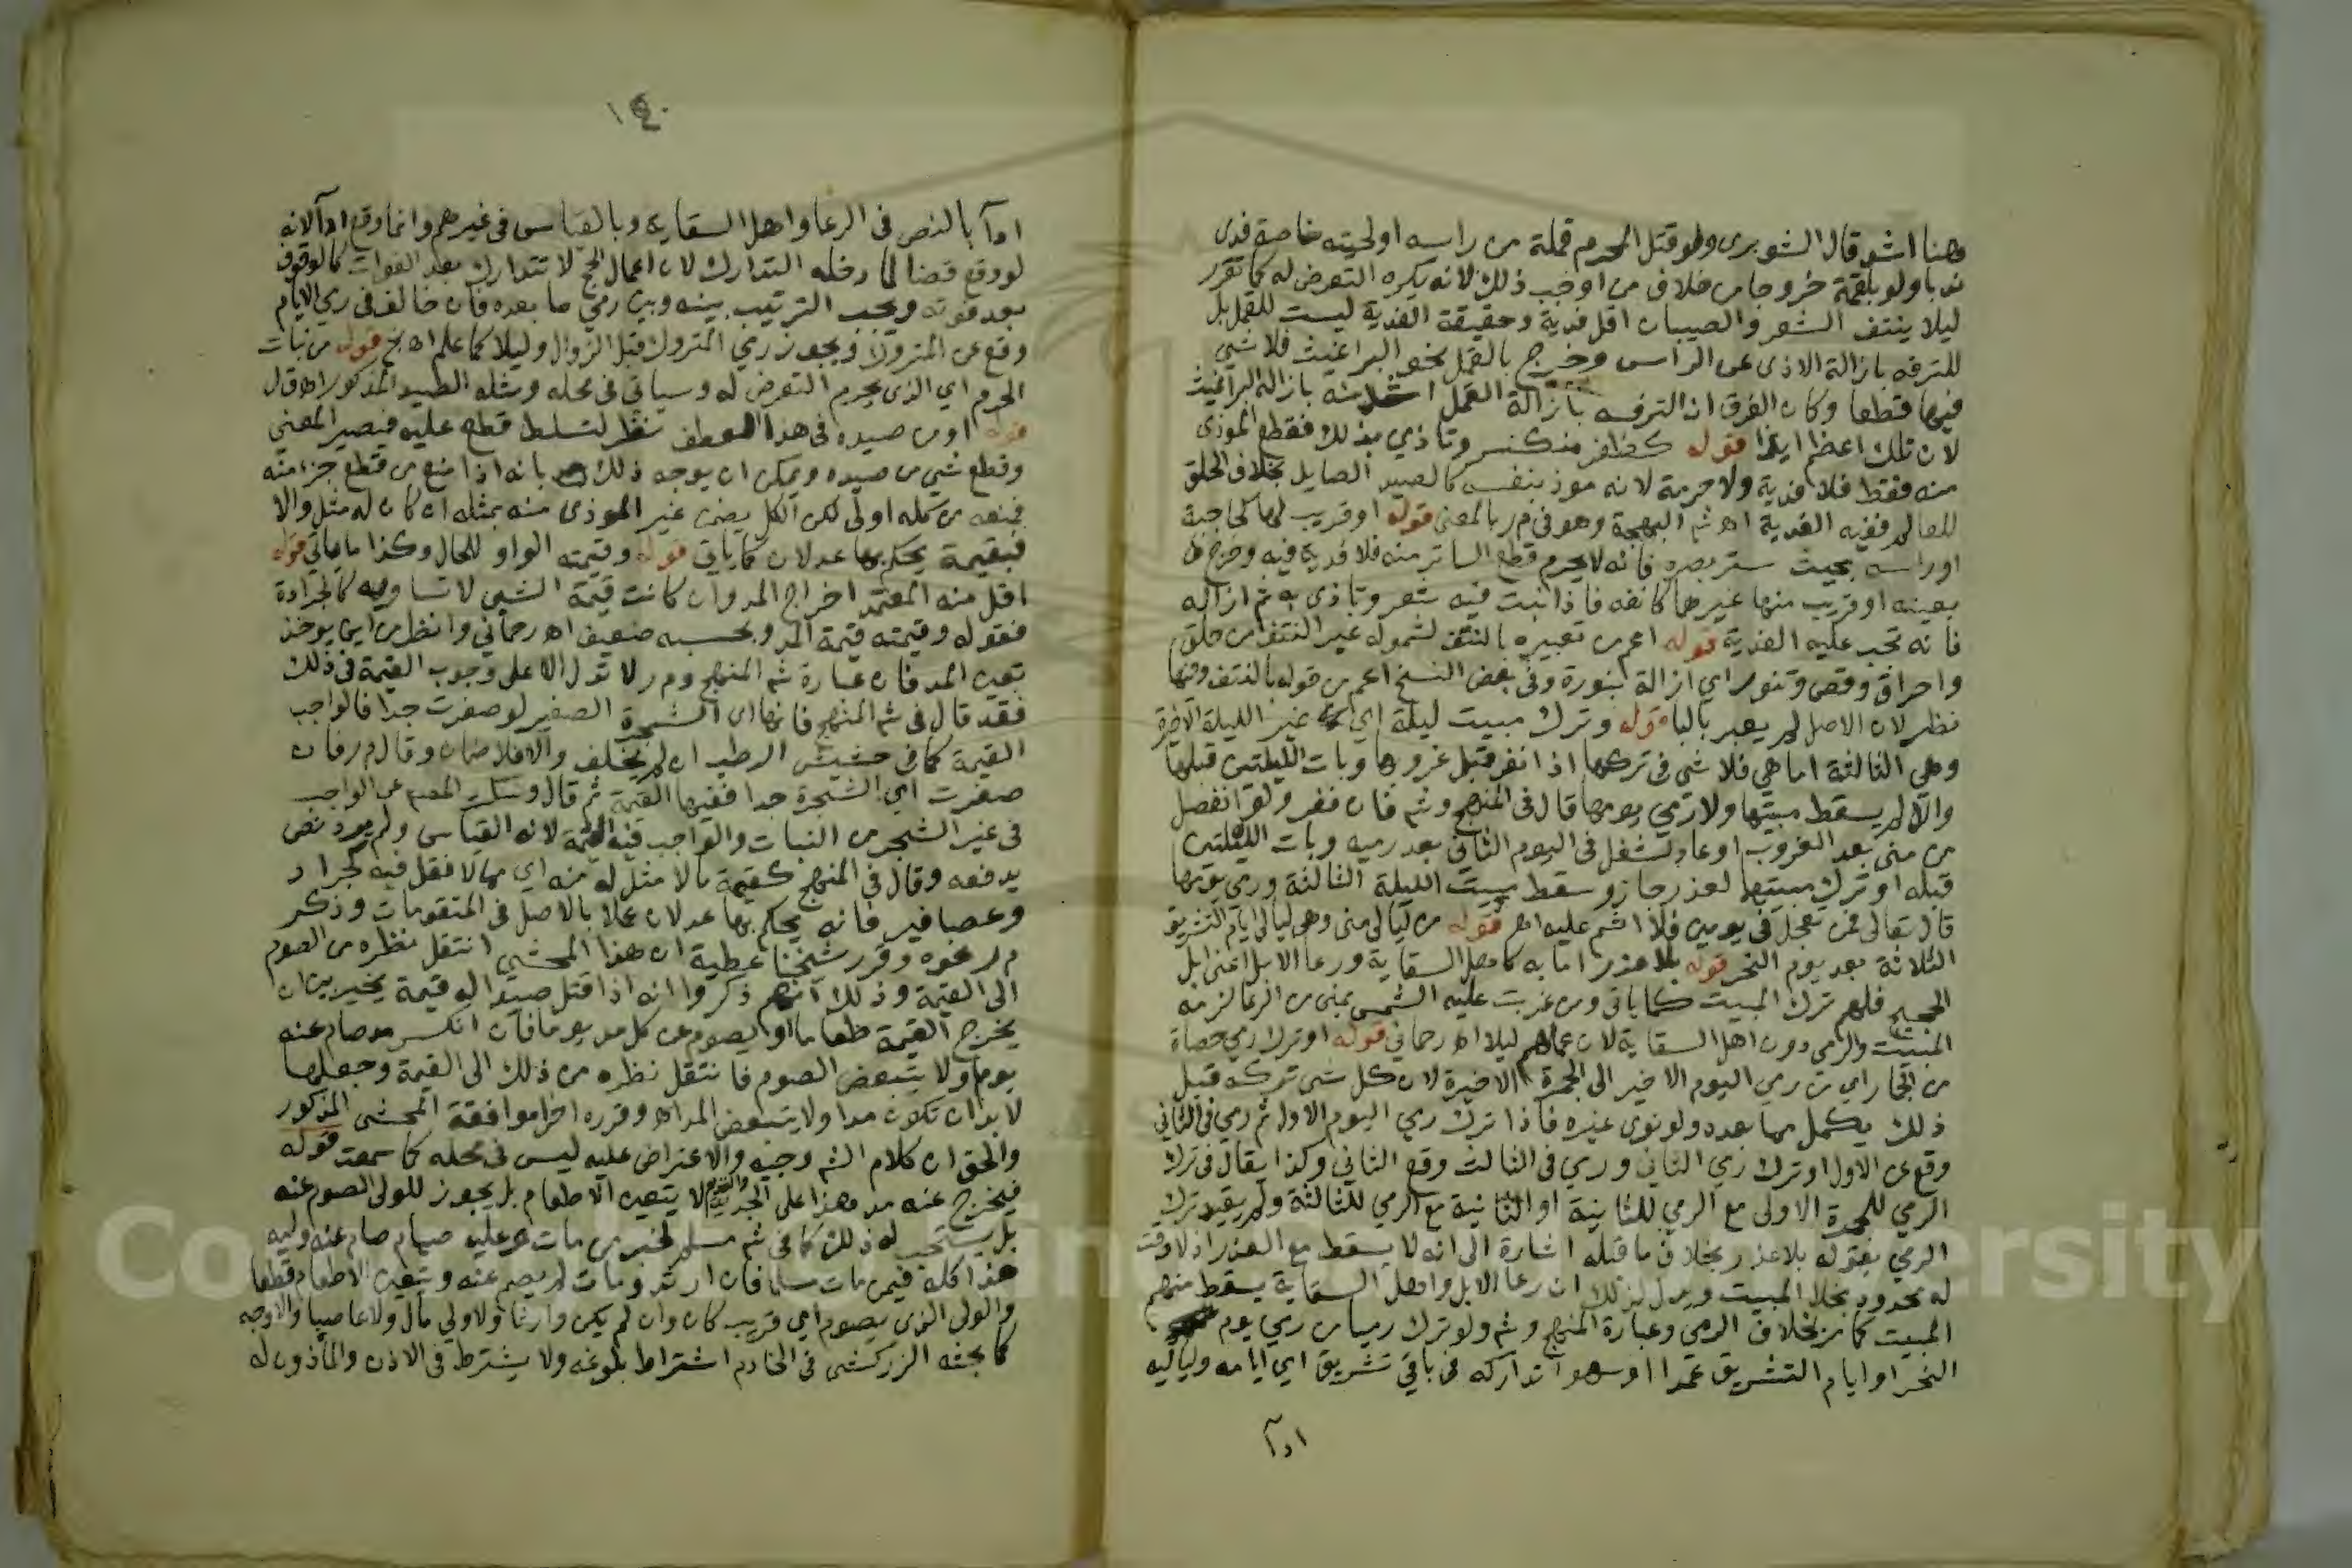 وهنا اشد قال الشوبري ولو قتل المحرم قملة من راسه او لحيته خاصة فدى
ندبا ولو بلقمة خروجا من خلاف من اوجب ذلك لانه يكره التعرض له كما تقرر
ليلا ينتف الشعر والصيبان اقل فدية وحقيقة الفدية ليست للقمل بل
للترفه بازالة الاذى عن الراس وخرج بالقمل نحو البراغيث فلا شي
فيها قطعا وكان الفرق ان الترفه بازالة القمل اشد منه بازالة البراغيث
لان تلك اعظم ايذا قوله كظفر منكسر وتاذي بذلك فقطع الموذي
منه فقط فلا فدية ولا حرمة لانه موذ بنفسه كالصيد الصايل بخلاف الحلق
ففيه الفدية اه شم البهجة وهو في م ر بالمعنى قوله او قريب لها كحاجبة
او راسه بحيث ستر بصره فانه لا يحرم قطع الساتر منه فلا فدية فيه وخرج
بعينه او قريب منها غيرها كانفه فاذا نبت فيه شعر وتاذى به ثم ازاله
فانه تجب عليه الفدية قوله اعم من تعبيره بالنتف لشموله غير النتف من حلق
واحراق وقص وتنور اي ازالة بنورة وفي بعض النسخ اعم من قوله بالنتف وفيها
نظر لان الاصل لم يعبر بالبا قوله وترك مبيت ليلة اي غير الليلة الاخيرة
وهي الثالثة اما هي فلا شي في تركها اذا نفر قبل غروبها وبات الليلتين قبلها
والا لم يسقط مبيتها ولا رمي يومها قال في المنهج وشم فان نفر ولو انفصل
من منى بعد الغروب او عاد لشغل في اليوم الثاني بعد رميه وبات الليلتين
قبله او ترك مبيتهما لعذر جاز وسقط مبيت الليلة الثالثة ورمي يومها
قال تعالى فمن تعجل في يومين فلا اثم عليه اه قوله من ليالي منى وهو ليالي ايام التشريق
الثلاثة بعد يوم النحر قوله بلا عذر اما به كاهل السقاية ورعا الابل اعني ابل
الحجيج فلهم ترك المبيت كما ياتي ومن غربت عليه الشمس بمنى من الرعا لزمه
المبيت والرمي دون اهل السقاية لان عملهم ليلا اه رحماني قوله او ترك رمي حصاة
من الجمار اي من رمي اليوم الاخير الى الجمرة الاخيرة لان كل شي تركه قبل
ذلك يكمل مما بعده ولو نوى غيره فاذا ترك رمي اليوم الاول ثم رمي في الثاني
وقع عن الاول او ترك رمي الثاني ورمي في الثالث وقع الثاني وكذا يقال في ترك
الرمي للجمرة الاولى مع الرمي للثانية او الثانية مع الرمي للثالثة ولم يقيد ترك
الرمي بقوله بلا عذر بخلاف ما قبله اشارة الى انه لا يسقط مع العذر اذ لا وقت
له محدود بخلاف المبيت ويدل لذلك ان رعا الابل واهل السقاية يسقط منهم
المبيت كما مر بخلاف الرمي وعبارة المنهج وشم ولو ترك رميا من رمي يوم
النحر او ايام التشريق عمدا او سهوا تداركه في باقي تشريق اي ايامه ولياليه
ادآ
١٤٠
ادآ بالنص في الرعا واهل السقاية وبالقياس في غيرهم وانما وقع ادآ لانه
لو وقع قضا لما دخله التدارك لان اعمال الحج لا تتدارك بعد الفوات كالوقوف
بعد فوته ويجب الترتيب بينه وبين رمي ما بعده فان خالف في رمي الايام
وقع عن المتروك ويجوز رمي المتروك قبل الزوال وليلا كما علم اه بخ قوله من نبات
الحرم اي الذي يحرم التعرض له وسياتي في محله ومثله الصيد المذكور اه ق ل
قوله او من صيده في هذا العطف نظر لتسلط قطع عليه فيصير المعنى
وقطع شي من صيده ويمكن ان يوجه ذلك بانه اذا منع من قطع جزء منه
فمنعه من كله اولى لكن الكل يضمن غير الموذي منه بمثله ان كان له مثل والا
فبقيمة يحكم بها عدلان كما ياتي قوله وقيمته الواو للحال وكذا ما ياتي قوله
اقل منه المعتمد اخراج المد وان كانت قيمة الشي لا تساويه كالجرادة
فقوله وقيمته قيمة المد وبحسبه ضعيف اه رحماني وانظر من اين يوخذ
تعين المد فان عبارة شم المنهج وم ر لا تدل الا على وجوب القيمة في ذلك
فقد قال في شم المنهج فانها اي الشجرة الصغير لو صغرت جدا فالواجب
القيمة كما في حشيش الرطب ان لم يخلف والا فلا ضمان وقال م ر فان
صغرت اي الشجرة جدا ففيها القيمة ثم قال وسكت المصنف عن الواجب
في غير الشجر من النبات والواجب فيه القيمة لانه القياس ولم يرد نص
يدفعه وقال في المنهج كقيمة ما لا مثل له منه اي مما لا نقل فيه كجراد
وعصافير فانه يحكم بها عدلان عملا بالاصل في المتقومات وذكر
م ر نحوه وقرر شيخنا عطية ان هذا المحشي انتقل نظره من الصوم
الى القيمة وذلك انهم ذكروا انه اذا قتل صيدا له قيمة يخير بين ان
يخرج القيمة طعاما او يصوم عن كل مد يوما فان انكسر مد صام عنه
يوما ولا يتبعض الصوم فانتقل نظره من ذلك الى القيمة وجعلها
لا بد ان تكون مدا ولا يتبعض المد اه وقرره اخرا موافقة المحشي المذكور
والحق ان كلام الشم وجيه والاعتراض عليه ليس في محله كما سمعت قوله
فيخرج عنه مد وهذا على الجديد والقديم لا يتعين الاطعام بل يجوز للولي الصوم عنه
بل يستحب له ذلك كما في شم مسلم لخبر من مات وعليه صيام صام عنه وليه
هذا كله فيمن مات مسلما فان ارتد ومات لم يصم عنه ويتعين الاطعام قطعا
والولي الذي يصوم اي قريب كان وان لم يكن وارثا ولا ولي مال ولا عاصبا والاوجه
كما بحثه الزركشي في الخادم اشتراط بلوغه ولا يشترط في الاذن والماذون له